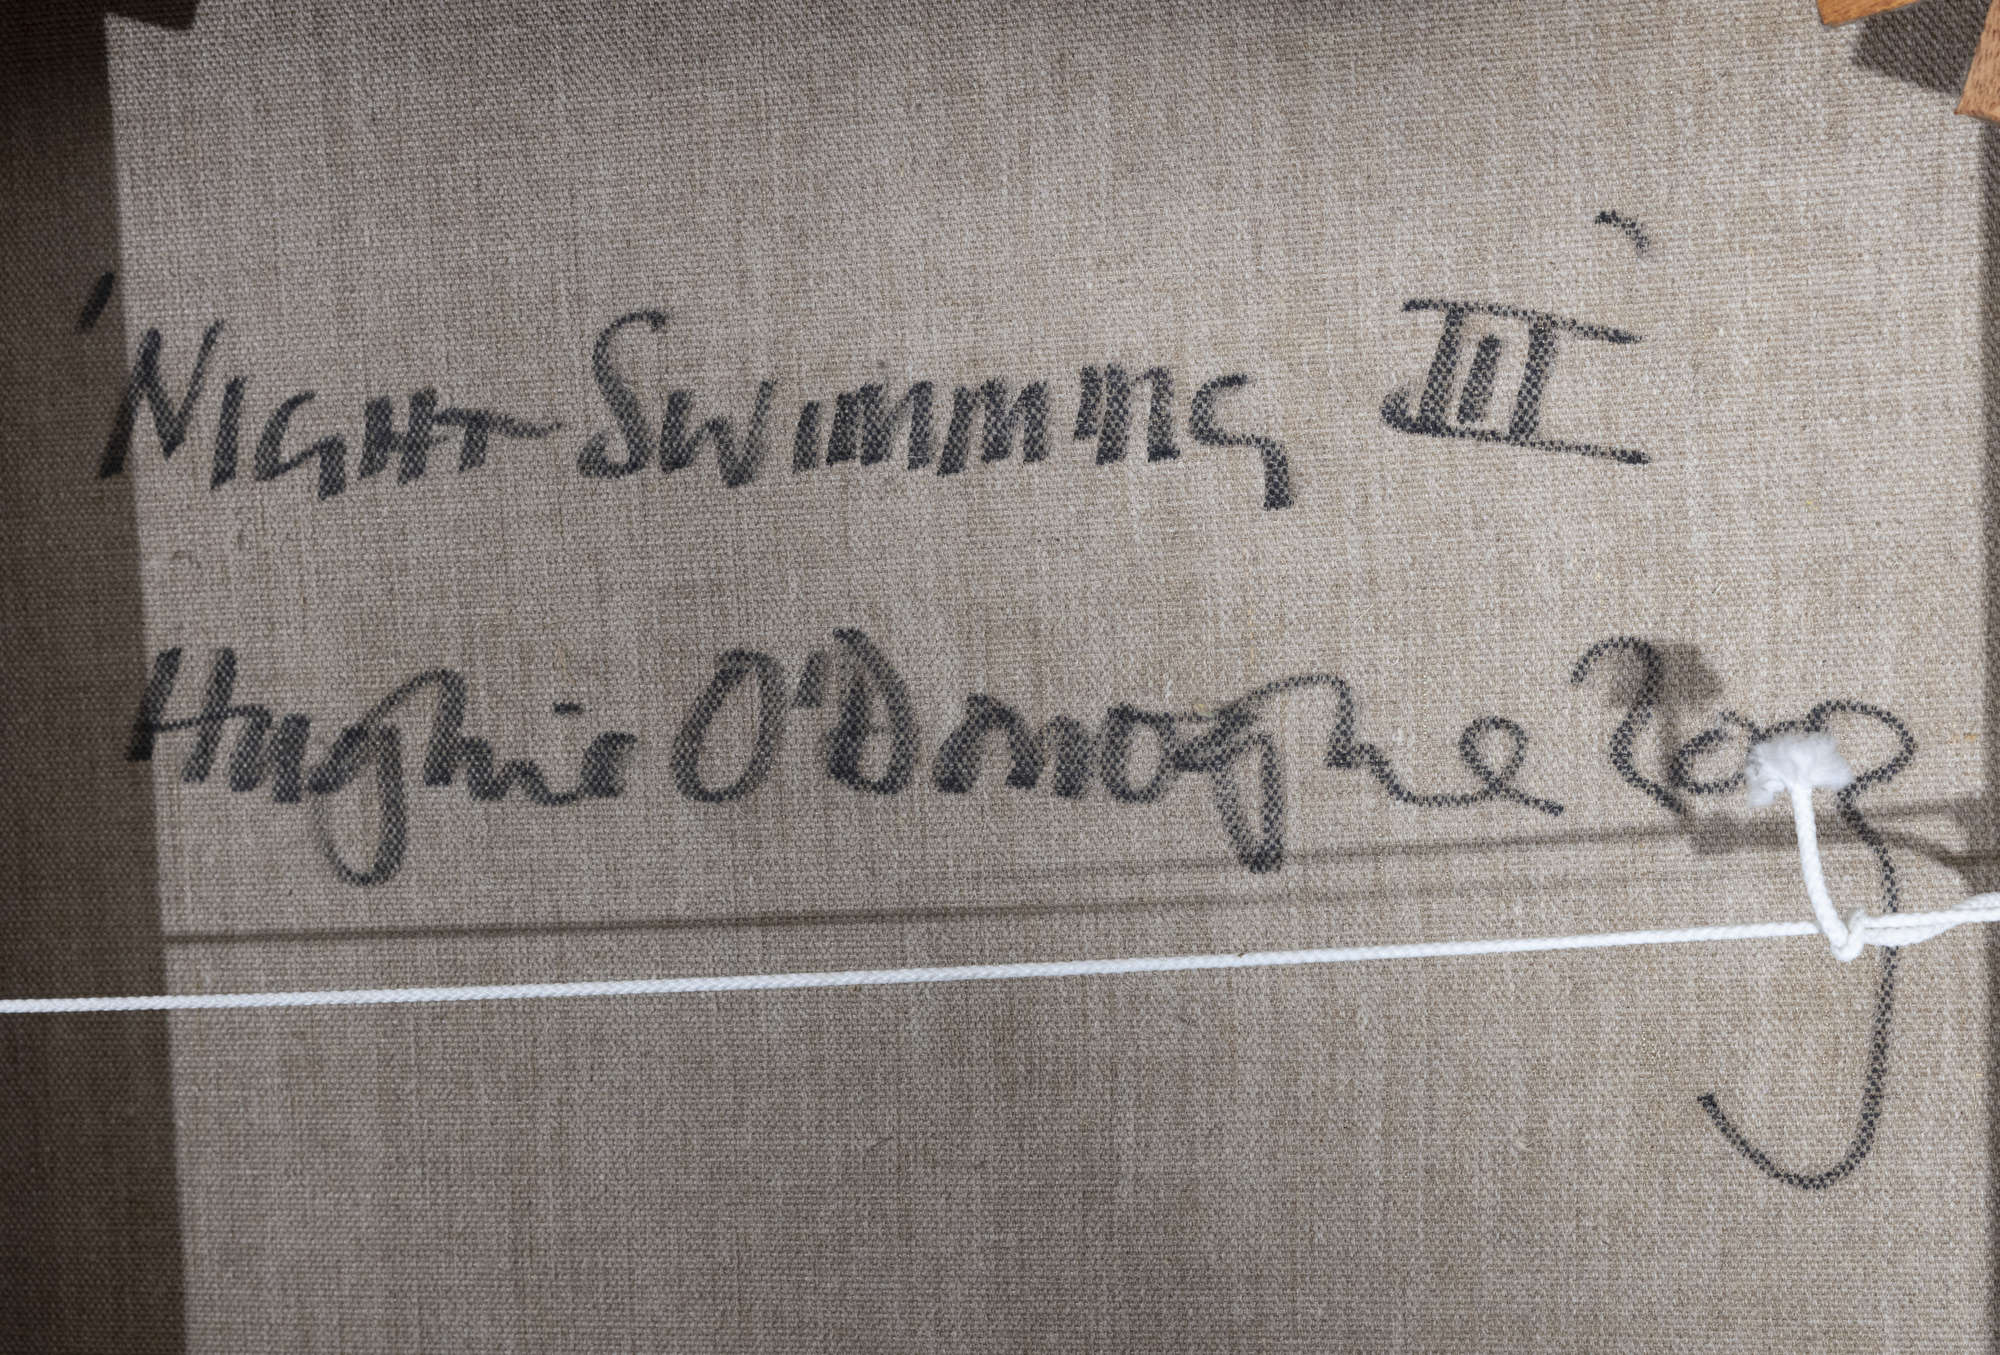 'NIGHT SWIMMING III'
Hughie O'Donoghue 2003